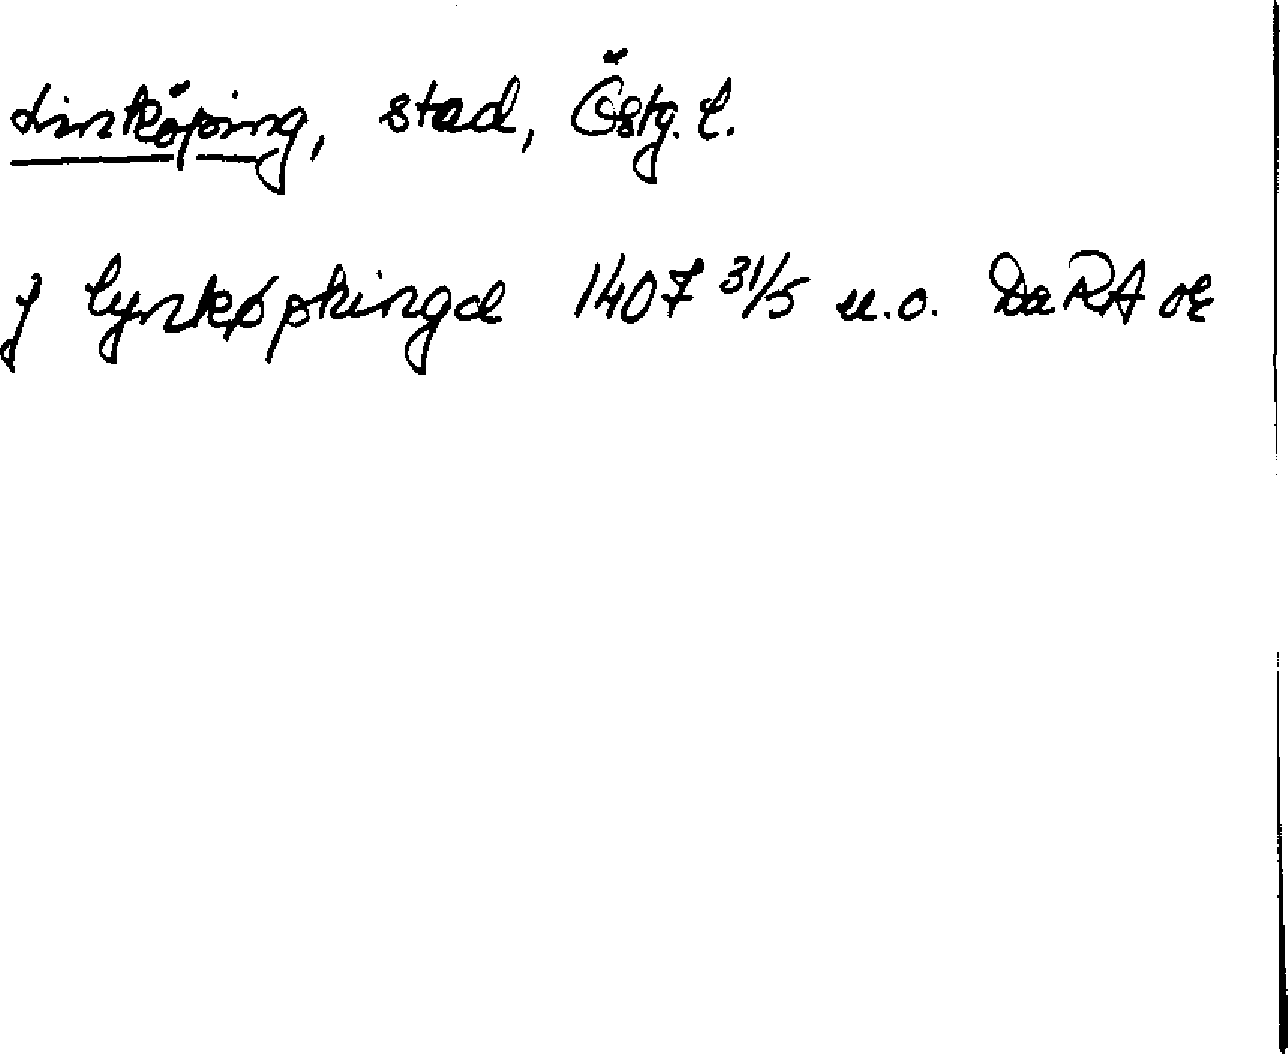 Linköping, stad, Östg. l.
j lynkøpkingæ 1407 31/5 u.o. DaRA or